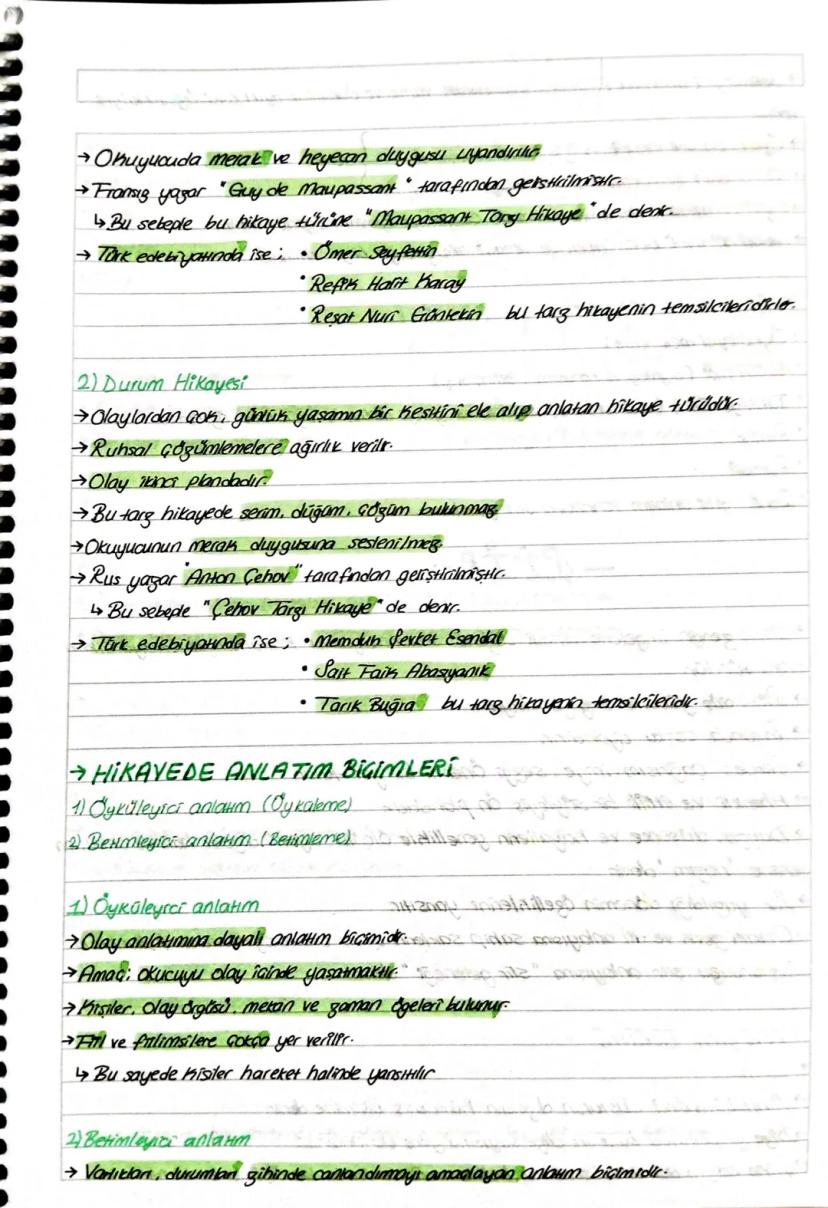 → Okuyucuda merak ve heyecan duygusu uyandırılır
→ Fransız yazar "Guy de Maupassant" tarafından geliştirilmiştir.
↳ Bu sebeple bu hikaye türüne "Maupassant Tarzı Hikaye" de denir.
→ Türk edebiyatında ise; • Ömer Seyfettin
• Refik Halit Karay
• Reşat Nuri Güntekin bu tarz hikayenin temsilcileridirler.
2) Durum Hikayesi
→ Olaylardan çok, günlük yaşamın bir kesitini ele alıp anlatan hikaye türüdür.
→ Ruhsal çözümlemelere ağırlık verilir.
→ Olay ikinci plandadır.
→ Bu tarz hikayede serim, düğüm, çözüm bulunmaz.
→ Okuyucunun merak duygusuna seslenilmez.
→ Rus yazar "Anton Çehov" tarafından geliştirilmiştir.
↳ Bu sebeple "Çehov Tarzı Hikaye" de denir.
→ Türk edebiyatında ise; • Memduh Şevket Esendal
• Sait Faik Abasıyanık
• Tarık Buğra bu tarz hikayenin temsilcileridir.
→ HİKAYEDE ANLATIM BİÇİMLERİ
1) Öyküleyici anlatım (Öyküleme)
2) Betimleyici anlatım (Betimleme)
1) Öyküleyici anlatım
→ Olay anlatımına dayalı anlatım biçimidir.
→ Amaç; okucuyu olay içinde yaşatmaktır.
→ Kişiler, olay örgüsü, mekan ve zaman ögeleri bulunur.
→ Fiil ve fiilimsilere çokça yer verilir.
↳ Bu sayede kişiler hareket halinde yansıtılır
2) Betimleyici anlatım
→ Varlıkları, durumları zihinde canlandırmayı amaçlayan anlatım biçimidir.